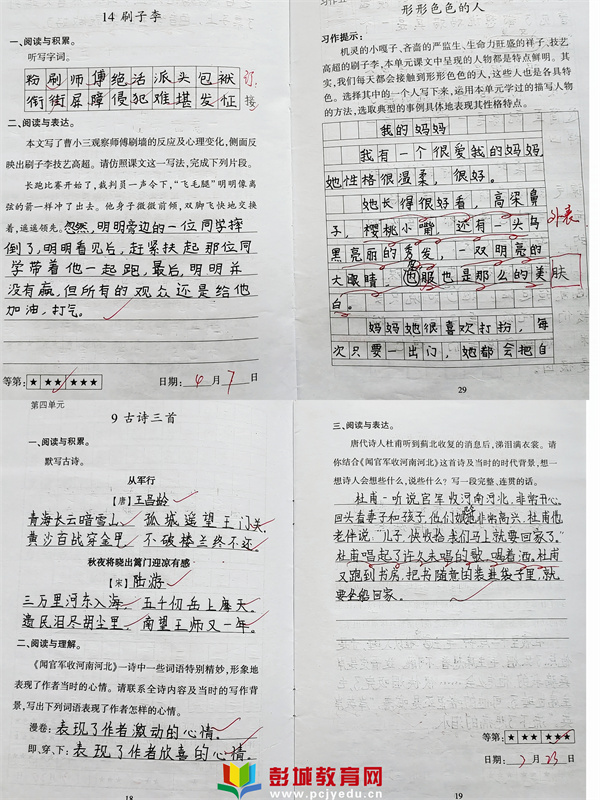 14 刷子李
一、阅读与积累。
听写字词。
粉刷师傅绝活派头包袱
衔街屏障侵犯难堪发怔
二、阅读与表达。
本文写了曹小三观察师傅刷墙的反应及心理变化,侧面
反映出刷子李技艺高超。请仿照课文这一写法,完成下列片段。
长跑比赛开始了,裁判员一声令下,“飞毛腿”明明像离
弦的箭一样冲了出去。他身子微微前倾,双脚飞快地交换
着,遥遥领先。忽然,明明旁边的一位同学摔
倒了,明明看见后,赶紧扶起那位同
学带着他一起跑,最后,明明并
没有赢,但所有的观众还是给他
加油,打气。
等第: ★★★★★★
日期: 4 月 7 日
形形色色的人
习作提示:
机灵的小嘎子、吝啬的严监生、生命力旺盛的祥子、技艺
高超的刷子李,本单元课文中呈现的人物都是特点鲜明。其
实,我们每天都会接触到形形色色的人,这些人也是各具特
色。选择其中的一个人写下来,运用本单元学过的描写人物
的方法,选取典型的事例具体地表现其性格特点。
我的妈妈
我有一个很爱我的妈妈,
她性格很温柔,很好。
她长得很好看,高梁鼻
子,樱桃小嘴,还有一头乌
黑亮丽的秀发,一双明亮的
大眼睛,皮肤也是那么的美
白。
外表
肤
妈妈她很喜欢打扮,每
次只要一出门,她都会把自
29
第四单元
9 古诗三首
一、阅读与积累。
默写古诗。
从军行
【唐】王昌龄
青海长云暗雪山,孤城遥望玉门关。
黄沙百战穿金甲,不破楼兰终不还。
秋夜将晓出篱门迎凉有感
【宋】陆游
三万里河东入海,五千仞岳上摩天。
遗民泪尽胡尘里,南望王师又一年。
二、阅读与理解。
《闻官军收河南河北》一诗中一些词语特别精妙,形象地
表现了作者当时的心情。请联系全诗内容及当时的写作背
景,写出下列词语表现了作者怎样的心情。
漫卷:表现了作者激动的心情。
即、穿、下:表现了作者欣喜的心情。
18
三、阅读与表达。
唐代诗人杜甫听到蓟北收复的消息后,涕泪满衣裳。请
你结合《闻官军收河南河北》这首诗及当时的时代背景,想一
想诗人会想些什么,说些什么?写一段完整、连贯的话。
杜甫一听说官军收河南河北,非常开心。
回头看妻子和孩子,他们也非常高兴。杜甫他
老伴说:“儿子,快收拾,我们马上就要回家了。”
杜甫唱起了许久未唱的歌,喝着酒。杜甫
又跑到书房,把书随意的装进袋子里,就
要坐船回家。
等第: ★★★★★★
日期: 2 月 23 日
19
彭城教育网
www.pcjyedu.cn